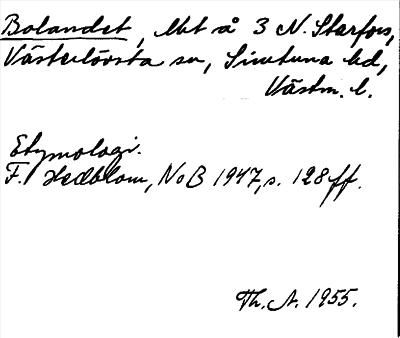 Bolandet, Mbt å 3 N. Starfors,
Västerlövsta sn, Simtuna hd,
Västm. l.
Etymologi.
F. Hedblom, NoB 1947, s. 128 ff.
Th. A. 1955.